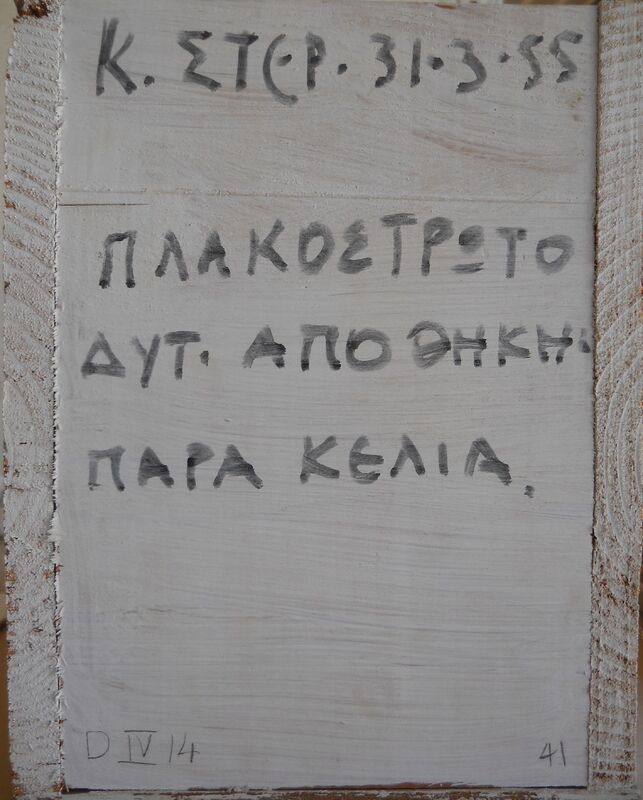 Κ. ΣΤΕΡ. 31·3·55
ΠΛΑΚΟΣΤΡΩΤΟ
ΔΥΤ. ΑΠΟΘΗΚΗ·
ΠΑΡΑ ΚΕΛΙΑ.
D IV 14
41